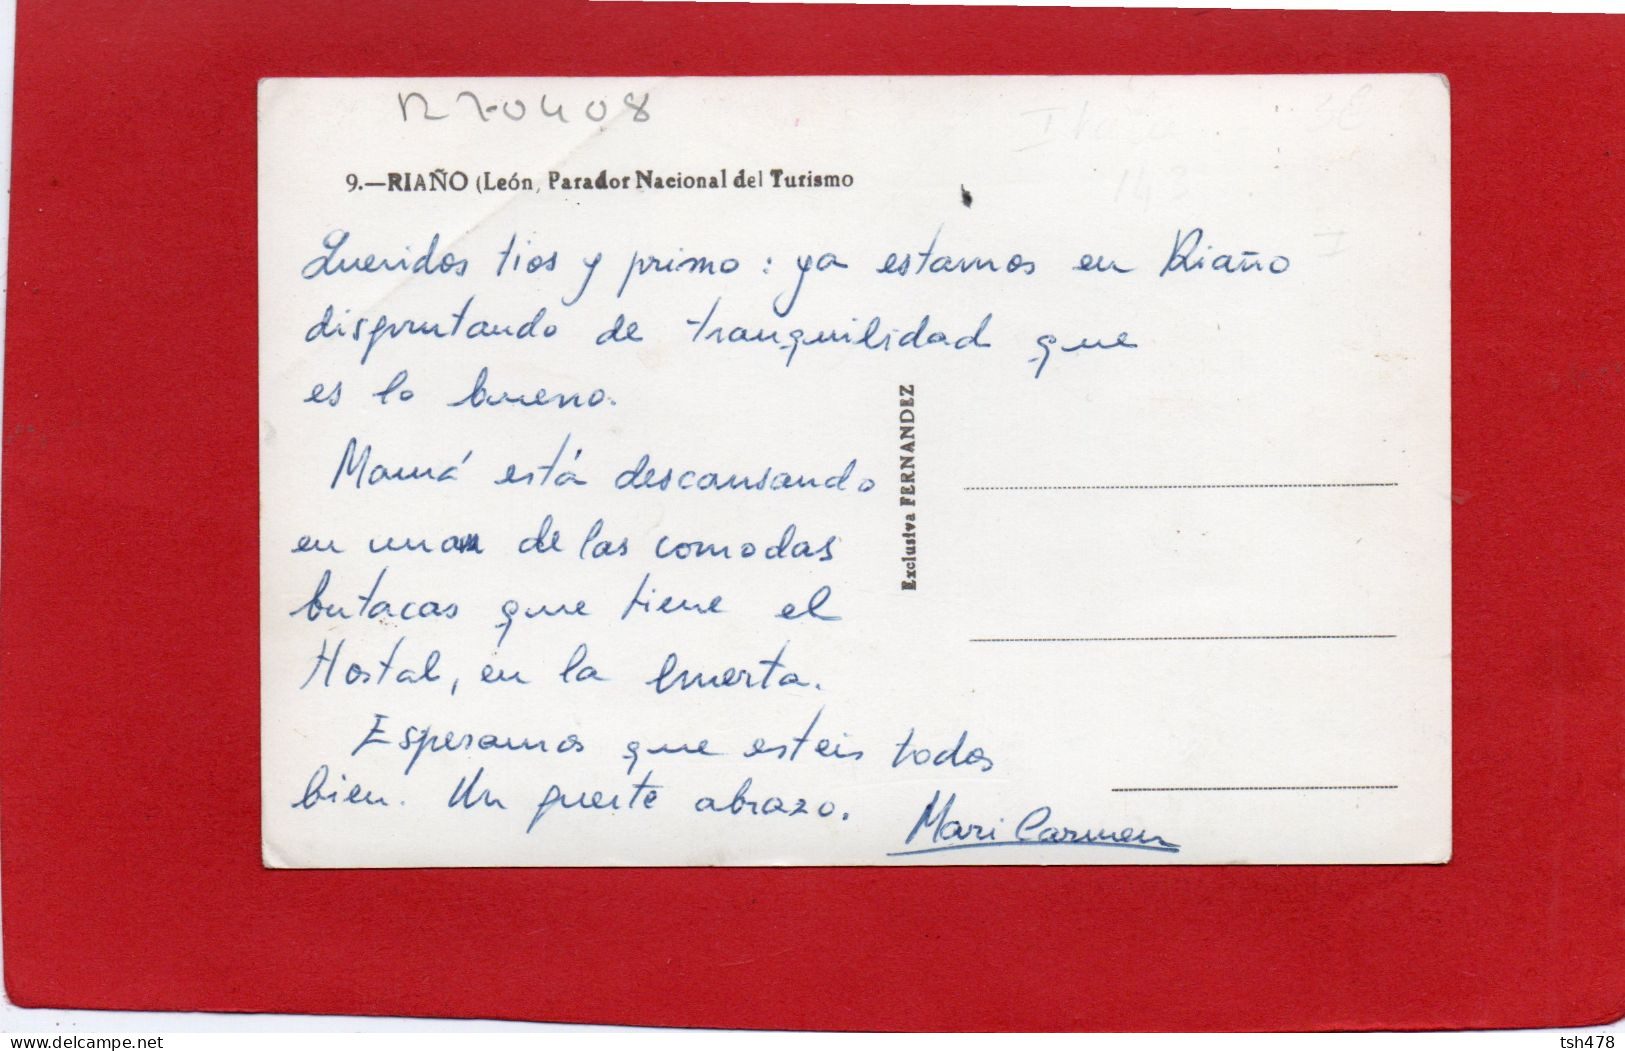 9.—RIAÑO (León, Parador Nacional del Turismo
Queridos tios y primo: ya estamos en Riaño
disfrutando de tranquilidad que
es lo bueno.
Mamá está descansando
en una de las comodas
butacas que tiene el
Hostal, en la huerta.
Esperamos que esteis todos
bien. Un fuerte abrazo.
Mari Carmen
Exclusiva FERNANDEZ
143
delcampe.net
tsh478